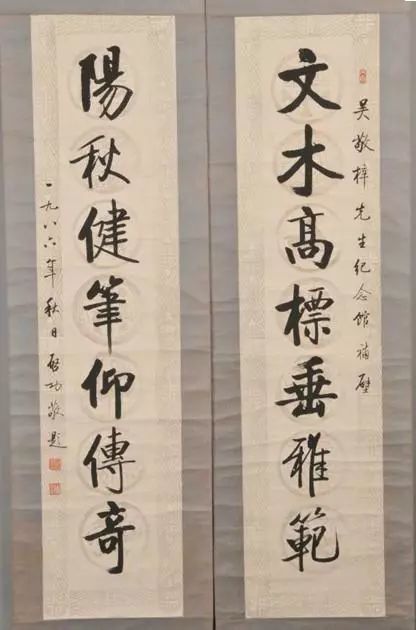 吴敬梓先生纪念馆補壁
文木高標垂雅範
陽秋健筆仰傳奇
一九八六年秋日启功敬题